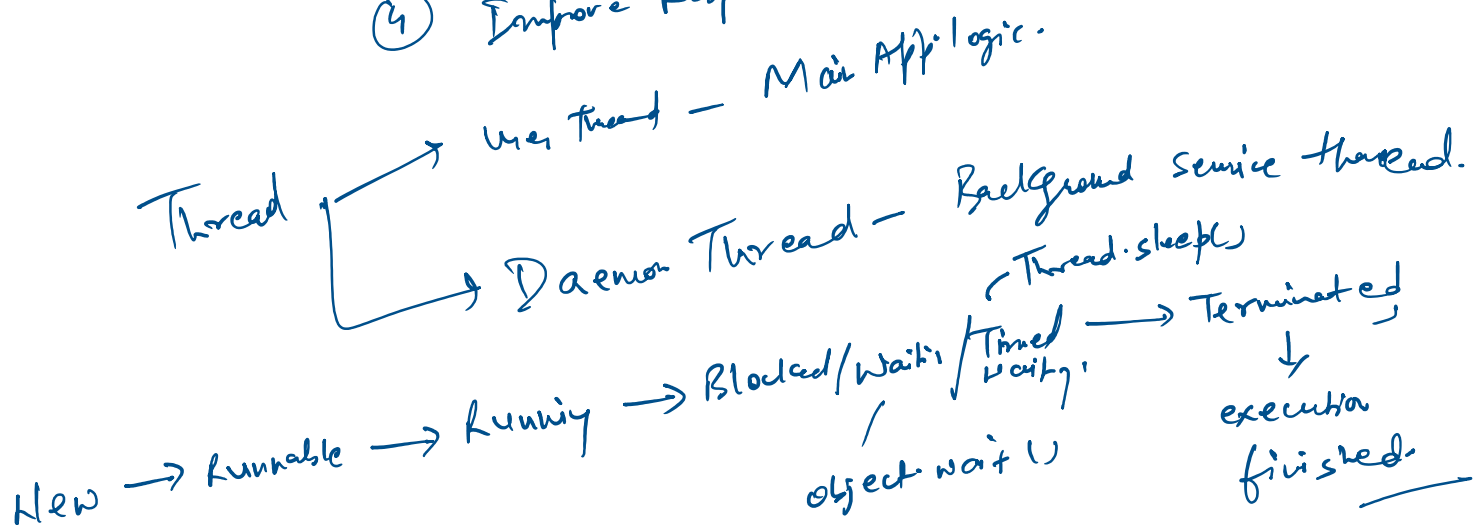 ④ Improve
User Thread — Main App logic.
Thread
Daemon Thread — Background Service thread.
Thread.sleep()
New → Runnable → Running → Blocked / Waiting / Timed waiting → Terminated
object.wait()
execution
finished.